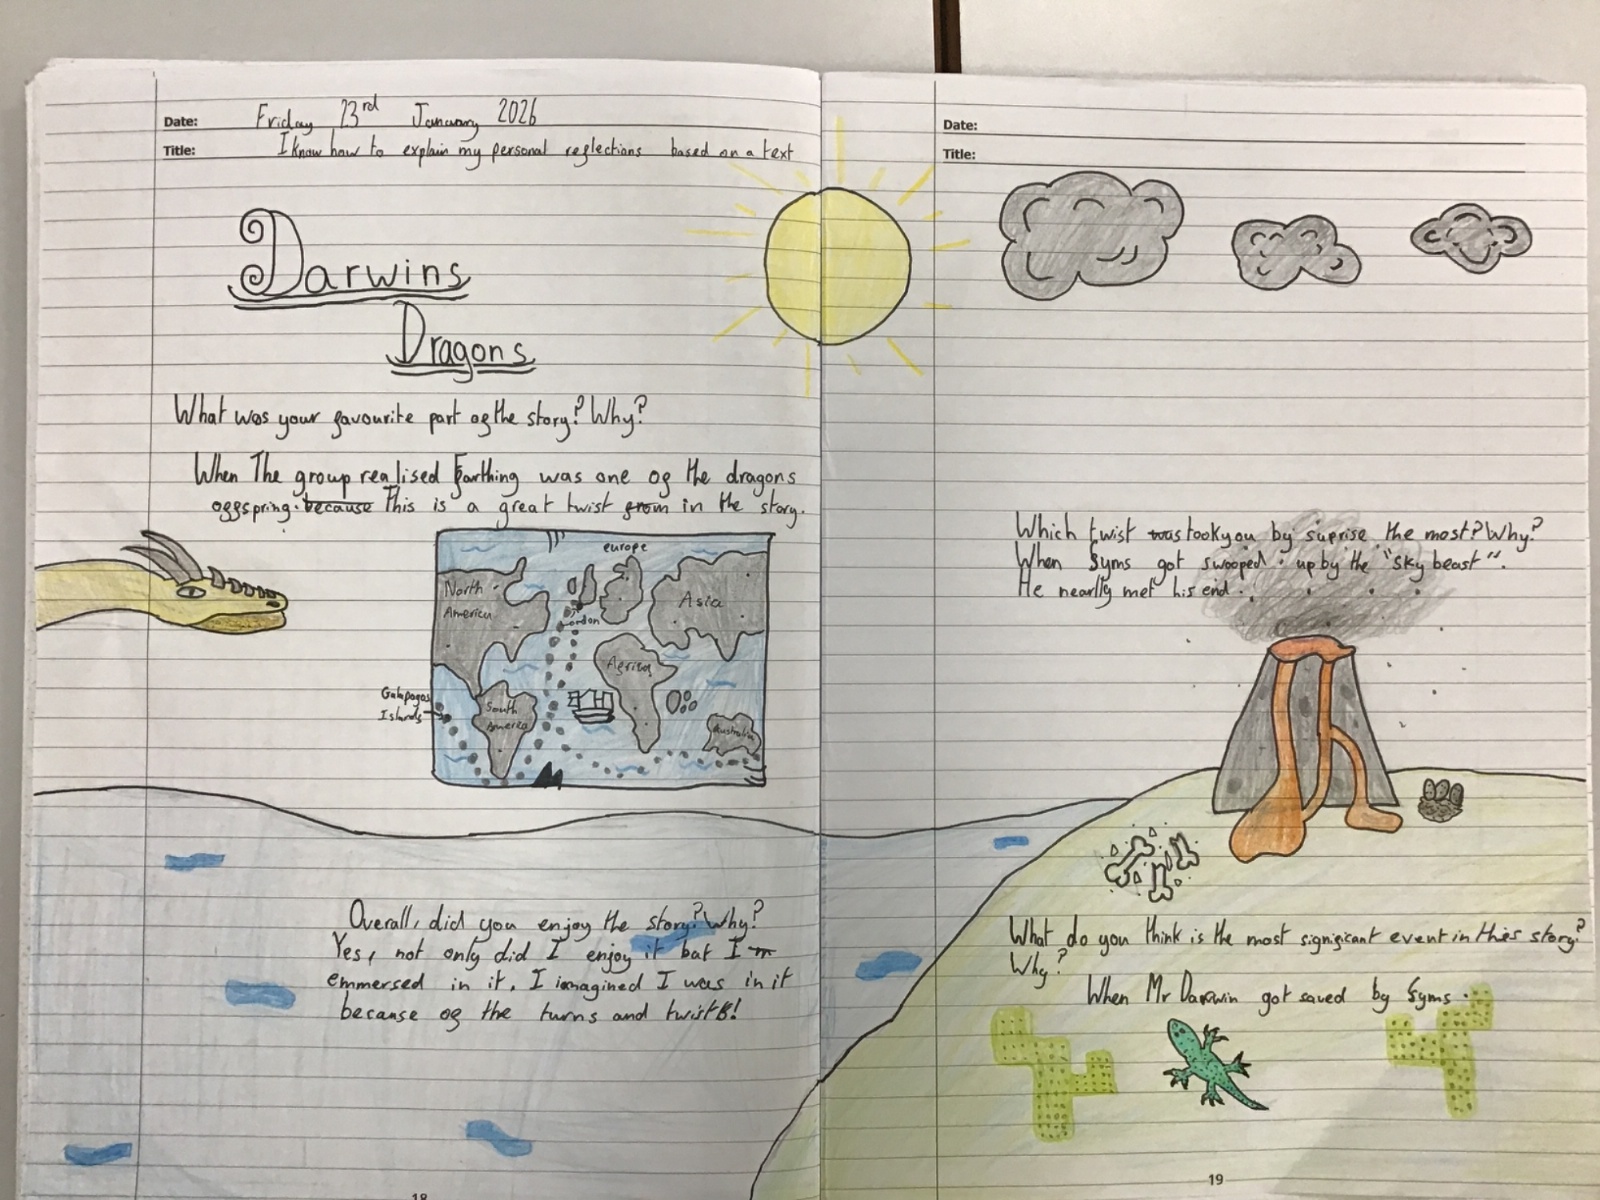 Date: Friday 23rd January 2026
Title: I know how to explain my personal reflections based on a text
Darwins
Dragons
What was your favourite part of the story? Why?
When The group realised Farthing was one of the dragons
offspring. because This is a great twist from in the story.
europe
North
America
London
Asia
Africa
Galapagos
Islands
South
America
Australia
Overall, did you enjoy the story? Why?
Yes, not only did I enjoy it but I
emmersed in it, I imagined I was in it
because of the turns and twists!
18
Date:
Title:
Which twist was took you by suprise the most? Why?
When Syms got swooped up by the "Sky beast".
He nearlly met his end.
What do you think is the most significant event in this story?
Why?
When Mr Darwin got saved by Syms.
19